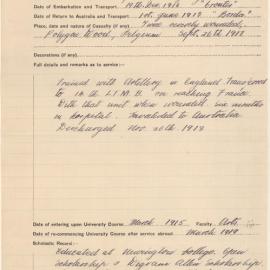 Date of Embarkation and Transport. 19th Dec. 1916 "Orontes"
Date of Return to Australia and Transport. 1st. June 1918 "Barda"
Place, date and nature of Casualty (if any). severely wounded,
Polygon Wood, Belgium Sept. 26th 1917
Decorations (if any).
Full details and remarks as to service :
Trained with Artillery in England Transferred
to L.T.M.B. on reaching France
With that unit when wounded. six months
in hospital. Invalided to Australia
Discharged Nov 20th 1918
Date of entering upon University Course, March 1915 Faculty, Arts
Date of re-commencing University Course after service abroad March 1919
Scholastic Record:
Educated at Newington College. Open
Scholarship & Allen Scholarship.